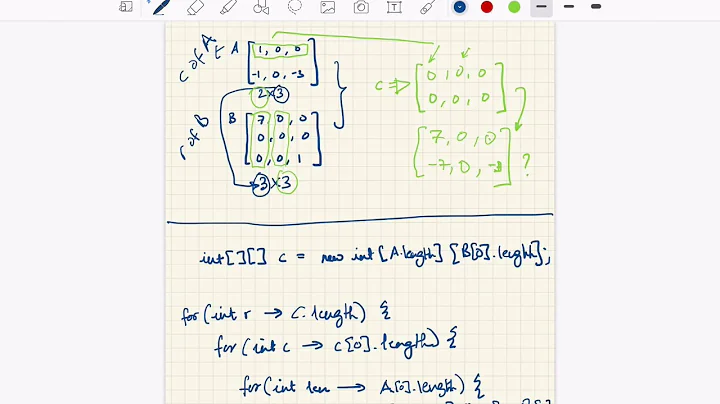 c of A
A [1, 0, 0
-1, 0, -3]
2 × 3
r of B
B [7, 0, 0
0, 0, 0
0, 0, 1]
3 × 3
C ⇒ [0, 0, 0
0, 0, 0]
[7, 0, 0
-7, 0, -3] ?
int[][] c = new int[A.length] [B[0].length];
for(int r → C.length) {
for(int c → c[0].length) {
for(int len → A[0].length) {